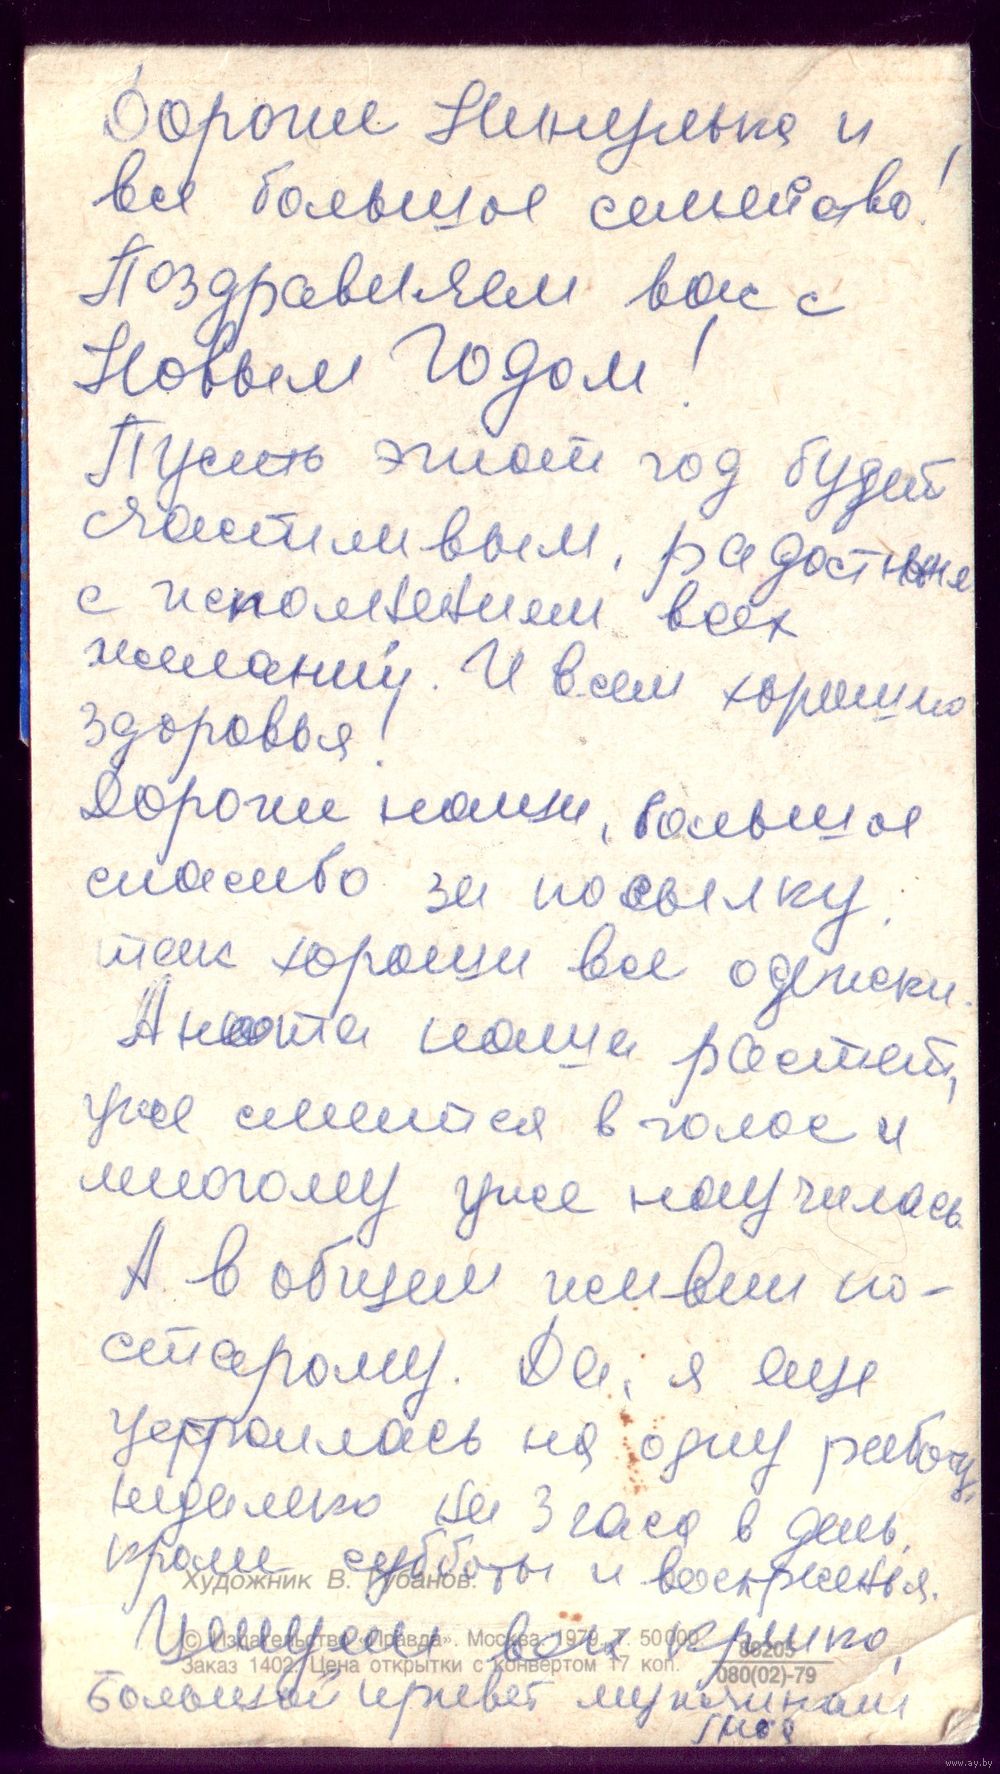 Дорогие Нинулька и
все большое семейство!
Поздравляем вас с
Новым Годом!
Пусть этот год будет
счастливым, радостным
с исполнением всех
желаний. И всем хорошего
здоровья!
Дорогие наши, большое
спасибо за посылку,
так хороши все одежки.
Анюта наша растет,
уже смеется в голос и
многому уже научилась
А в общем живем по-
старому. Да, я еще
устроилась на одну работу,
недалеко на 3 часа в день,
кроме субботы и воскресенья.
Художник В. Губанов.
Целуем всех крепко,
© Издательство «Правда». Москва. 1979. Т. 50000
Заказ 1402. Цена открытки с конвертом 17 коп.
86205
080(02)-79
Большой привет мужчинам
www.ay.by